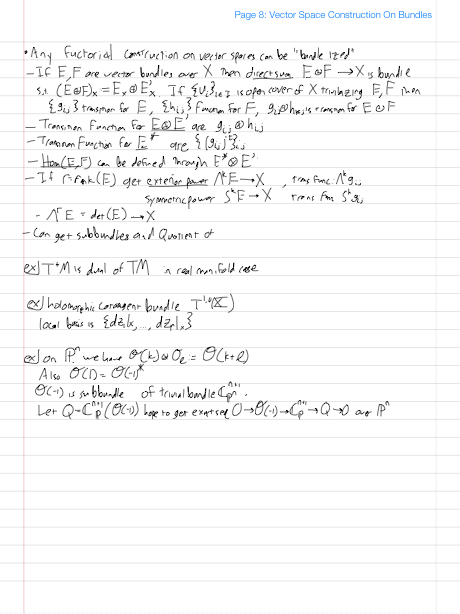 Page 8: Vector Space Construction On Bundles
• Any fuctorial construction on vector spaces can be "bundle ized"
- If E, F are vector bundles over X then direct sum E⊕F → X is bundle
s.t. (E⊕F)ₓ = Eₓ⊕Fₓ. If {Uᵢ}ᵢ∈I is open cover of X trivializing E, F then
{gᵢⱼ} transition for E, {hᵢⱼ} function for F, gᵢⱼ⊕hᵢⱼ is transition for E⊕F
- Transition Function for E⊗E' are gᵢⱼ⊗hᵢⱼ
- Transition Function for E* are
- Hom(E,F) can be defined through E*⊗E'
- If r=rank(E) get exterior power ΛᵏE → X, trans func: Λᵏgᵢⱼ
Symmetric power SᵏE → X trans fun Sᵏgᵢⱼ
- ΛʳE = det(E) → X
- Can get subbundles and Quotient of
ex) T*M is dual of TM in real manifold case
ex) holomorphic cotangent bundle T¹,⁰(X)
local basis is {dz₁|ₓ, ..., |ₓ}
ex) on ℙⁿ we have O(k)⊗O_ℓ = O(k+ℓ)
Also O(1) = O(-1)*
O(-1) is subbundle of trivial bundle ℂⁿ⁺¹_ℙⁿ.
Let Q = ℂⁿ⁺¹_ℙ/(O(-1)) hope to get exact seq 0→O(-1)→ℂⁿ⁺¹_ℙ→Q→0 over ℙⁿ